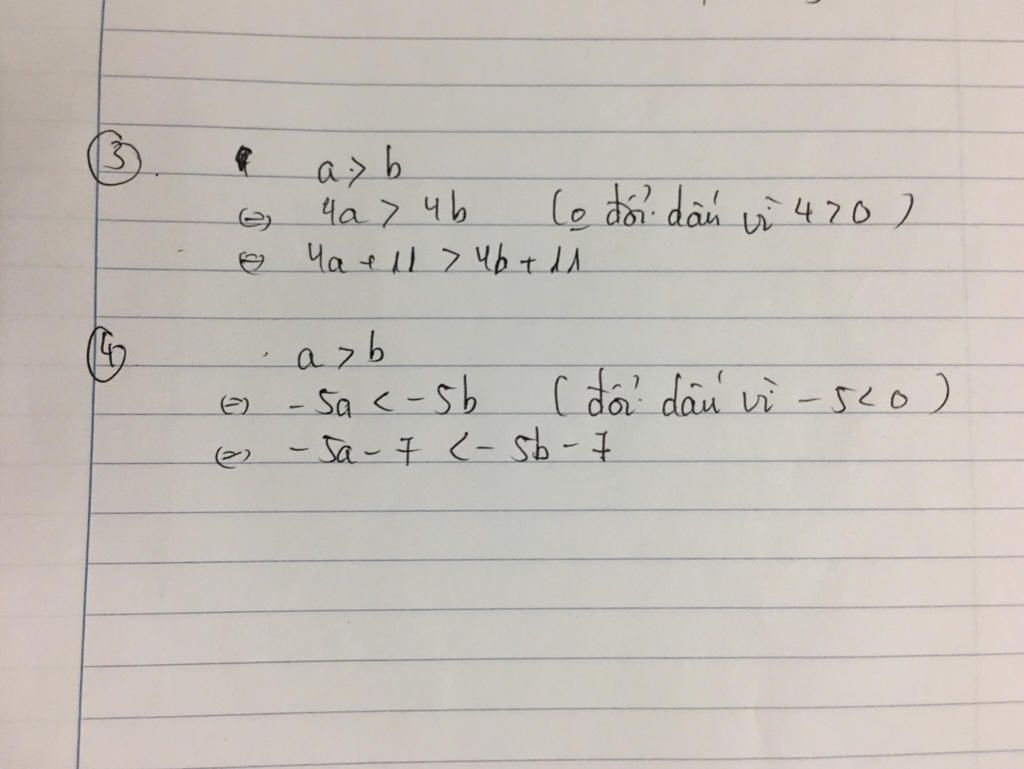 ③.
a > b
⇔ 4a > 4b (o̲ đổi dấu vì 4 > 0)
⇔ 4a + 11 > 4b + 11
④
a > b
⇔ -5a < -5b (đổi dấu vì -5 < 0)
⇔ -5a - 7 < -5b - 7